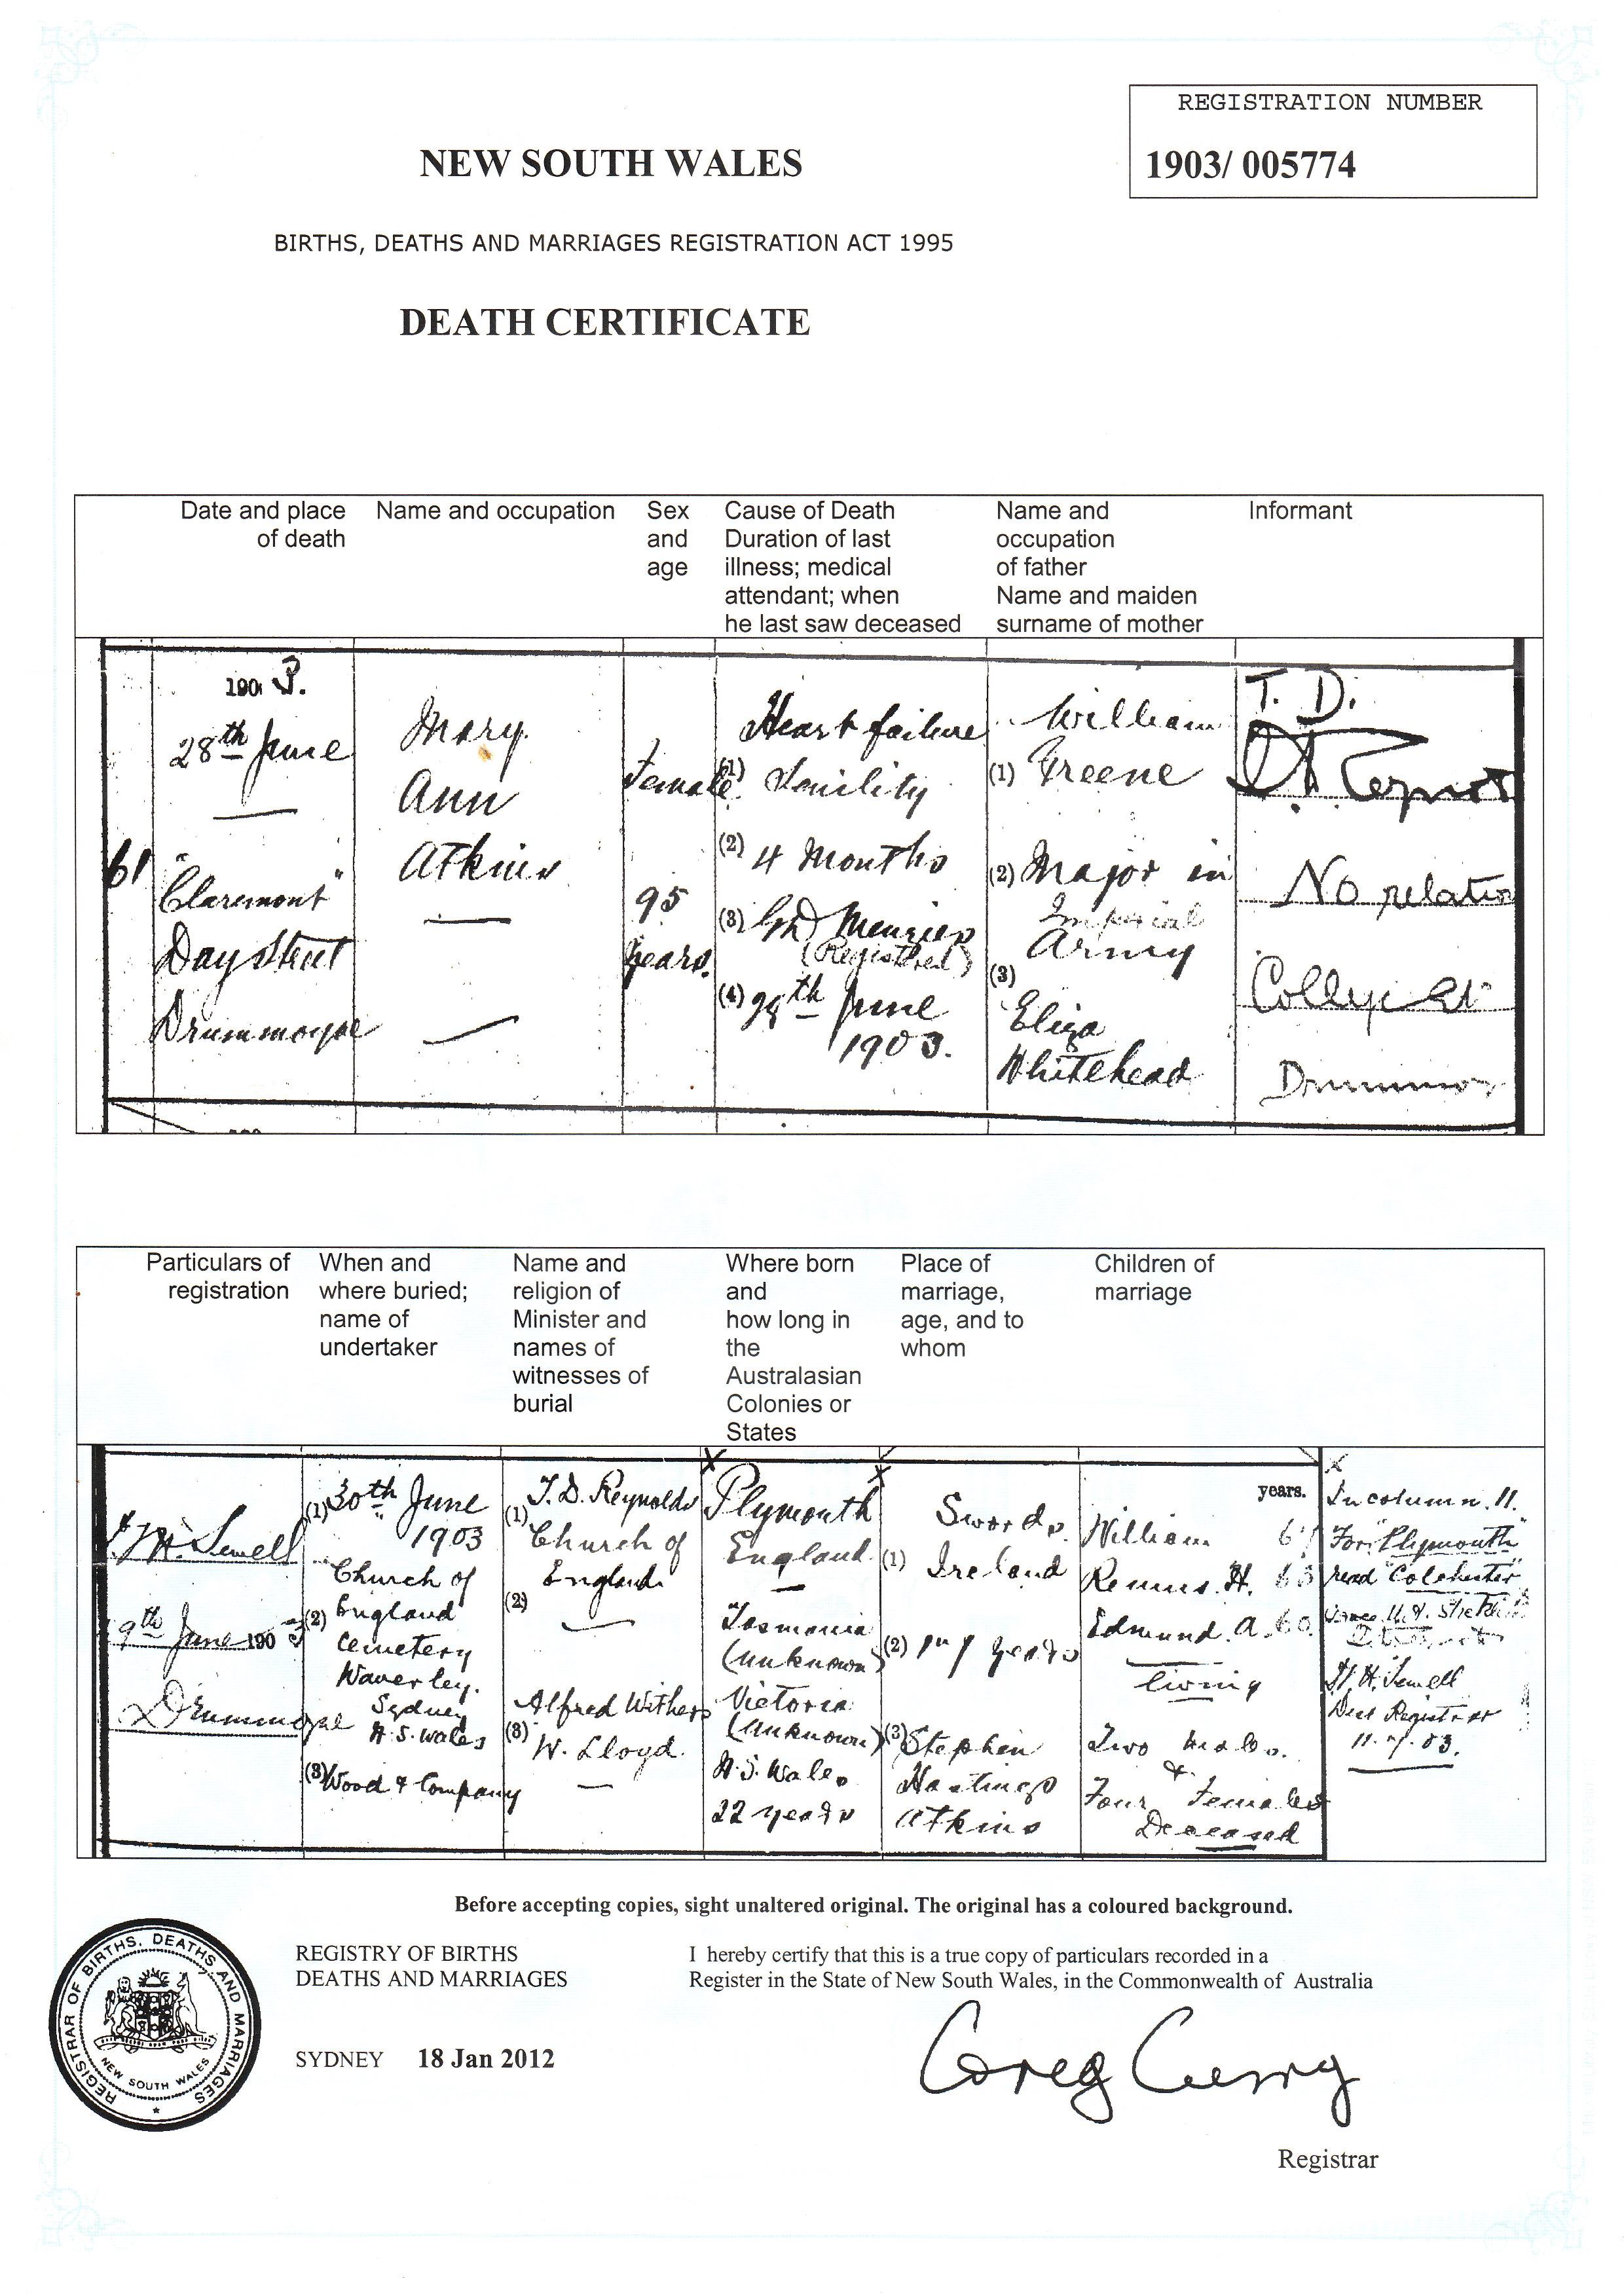 REGISTRATION NUMBER
1903/ 005774
NEW SOUTH WALES
BIRTHS, DEATHS AND MARRIAGES REGISTRATION ACT 1995
DEATH CERTIFICATE
Date and place
of death
Name and occupation
Sex
and
age
Cause of Death
Duration of last
illness; medical
attendant; when
he last saw deceased
Name and
occupation
of father
Name and maiden
surname of mother
Informant
61
1903.
28th June
"Claremont"
Day Street
Drummoyne
Mary
Ann
Atkins
Female
95
years.
Heart failure
(1) Senility
(2) 4 Months
(3) Menzies
(Registered)
(4) 28th June
1903.
William
(1) Greene
(2) Major in
Imperial
Army
(3)
Eliza
Whitehead
T. D.
No relation
College St
Particulars of
registration
When and
where buried;
name of
undertaker
Name and
religion of
Minister and
names of
witnesses of
burial
Where born
and
how long in
the
Australasian
Colonies or
States
Place of
marriage,
age, and to
whom
Children of
marriage
H. Sewell
9th June 1903
Drummoyne
(1) 30th June
1903
Church of
(2) England
Cemetery
Waverley.
Sydney
N.S. Wales
(3) Wood & Company
T. D. Reynolds
(1)
Church of
England
(2)
Alfred Withers
(3) W. Lloyd.
X
Plymouth
England.
Tasmania
(unknown)
Victoria
(unknown)
N.S. Wales
22 years
X
Swords.
(1) Ireland
(2) years
(3) Stephen
Hastings
Atkins
years.
William
H. 63
Edmund. A. 60.
living
Two males.
&
Four Females
Deceased
X
In column 11.
For "Plymouth"
read "Colchester"
H. Sewell
Dist Registrar
11.7.03.
Before accepting copies, sight unaltered original. The original has a coloured background.
REGISTRAR OF BIRTHS, DEATHS AND MARRIAGES
NEW SOUTH WALES
REGISTRY OF BIRTHS
DEATHS AND MARRIAGES
SYDNEY 18 Jan 2012
I hereby certify that this is a true copy of particulars recorded in a
Register in the State of New South Wales, in the Commonwealth of Australia
Greg Curry
Registrar